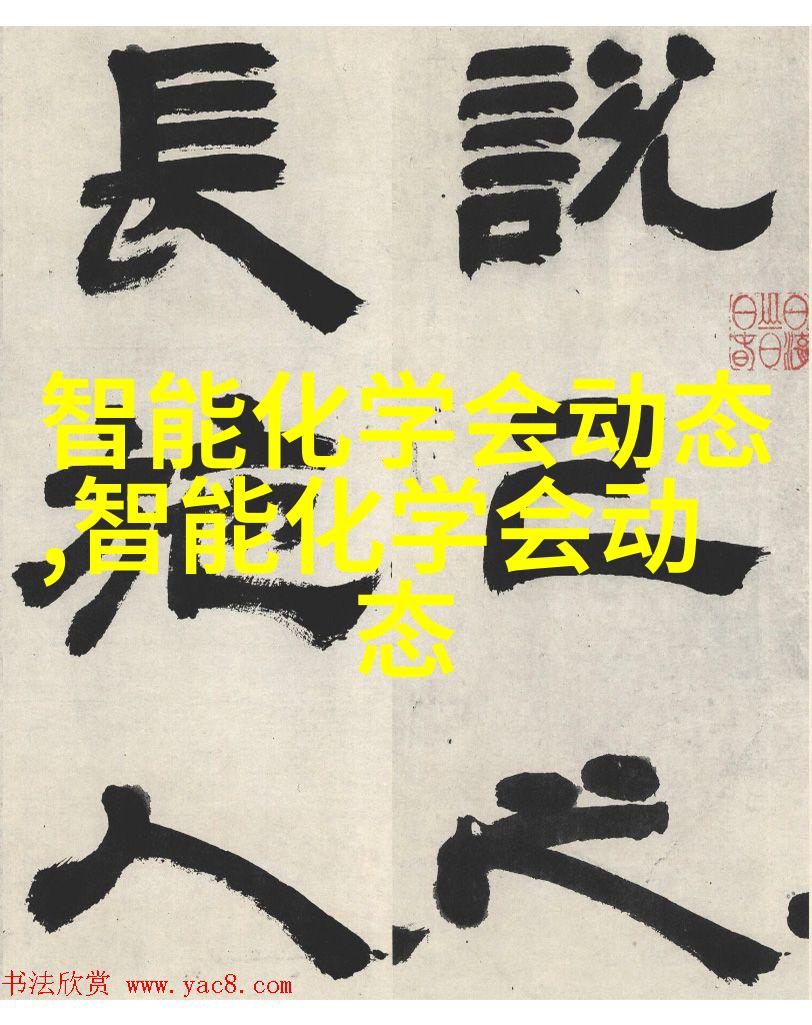 說己之
長施人
智能化学会动态
,智能化学会动
态
书法欣赏 www.yac8.com